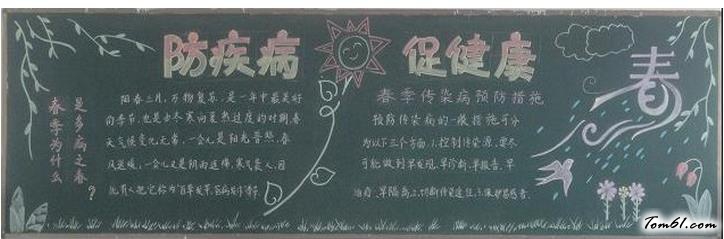 防疾病 促健康
春季为什么
是多病之春?
阳春三月,万物复苏,是一年中最美好
的季节,也是由冬寒向夏热过度的时期,春
天气候变化无常,一会儿是阳光普照,春
风送暖,一会儿又是阴雨连绵,寒气袭人,因
此有人把它称为"百草发芽,百病发作"季节
春季传染病预防措施
预防传染病的一般措施可分
为以下三个方面,1.控制传染源,要尽
可能做到早发现,早诊断,早报告,早
治疗,早隔离,2.切断传染途径,3.保护易感者.
春
Tom61.com